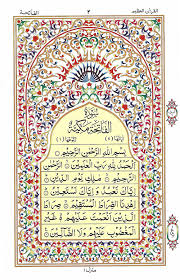 القرآن العظيم ٢ الفاتحة
سورة
الفاتحة مكية
بسم الله الرحمن الرحيم
الحمد لله رب العلمين
الرحمن الرحيم ملك يوم الدين
إياك نعبد وإياك نستعين
اهدنا الصراط المستقيم صراط
الذين أنعمت عليهم غير
المغضوب عليهم ولا الضالين
منزل ١